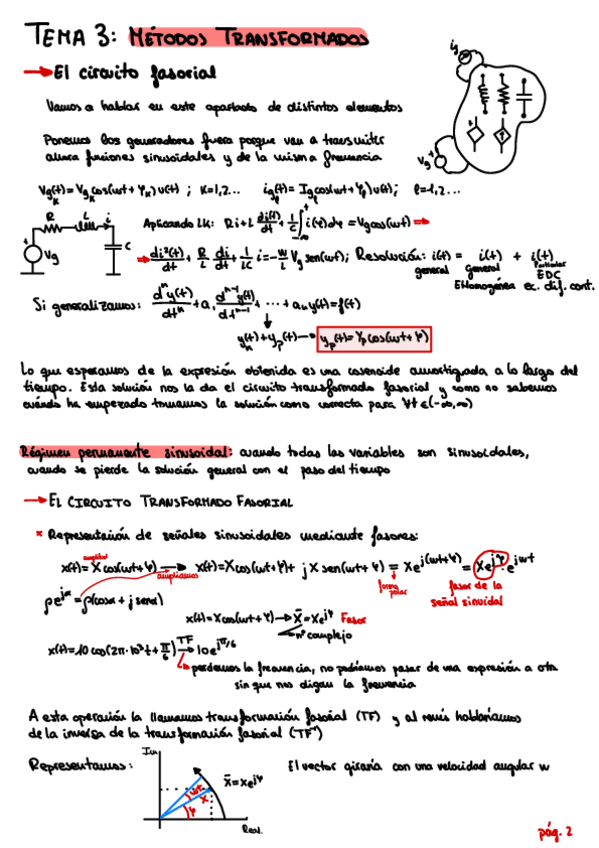 TEMA 3: MÉTODOS TRANSFORMADOS
→ El circuito fasorial
Vamos a hablar en este apartado de distintos elementos
Ponemos los generadores fuera porque van a transmitir
ahora funciones sinusoidales y de la misma frecuencia
ig
Vg
+
Vgk(t) = Vgk cos(ωt + φk) u(t) ; k=1,2... igℓ(t) = Igℓ cos(ωt + φℓ) u(t); ℓ=1,2...
R L i
+ Vg C
Aplicando LK: Ri + L di(t)/dt + 1/C ∫ i(φ)dφ = Vg cos(ωt) ⇒
di²(t)/dt + R/L di/dt + 1/LC i = -w/L Vg sen(wt); Resolución: i(t) = i(t) + i(t)
general general Particular
EHomogénea EDC
ec. dif. cont.
Si generalizamos: dⁿy(t)/dtⁿ + a₁ dⁿ⁻¹y(t)/dtⁿ⁻¹ + ... + aₙy(t) = f(t)
y(t) + yp(t) → yp(t) = Yp cos(ωt + φ)
Lo que esperamos de la expresión obtenida es una cosenoide amortiguada a lo largo del
tiempo. Esta solución nos la da el circuito transformado fasorial y como no sabemos
cuándo ha empezado tomamos la solución como correcta para ∀t ∈ (-∞,∞)
Régimen permanente sinusoidal: cuando todas las variables son sinusoidales,
cuando se pierde la solución general con el paso del tiempo
→ EL CIRCUITO TRANSFORMADO FASORIAL
* Representación de señales sinusoidales mediante fasores:
amplitud
x(t) = X cos(ωt + φ) → x(t) = X cos(ωt + φ) + j X sen(ωt + φ) = X e^j(ωt+φ) = X e^jφ · e^jωt
ampliamos
forma polar
fasor de la
señal sinuidal
ρe^jα = ρ(cosα + j senα)
x(t) = X cos(ωt + φ) → X̄ = X e^jφ Fasor
nº complejo
x(t) = 10 cos(2π·10³t + π/6) TF→ 10 e^jπ/6
perdemos la frecuencia, no podríamos pasar de una expresión a otra
sin que nos digan la frecuencia
A esta operación la llamamos transformación fasorial (TF) y al revés hablaríamos
de la inversa de la transformación fasorial (TF⁻¹)
Representamos:
Im
X̄ = X e^jφ
ωt
X
φ
Real
El vector giraría con una velocidad angular w
pág. 2